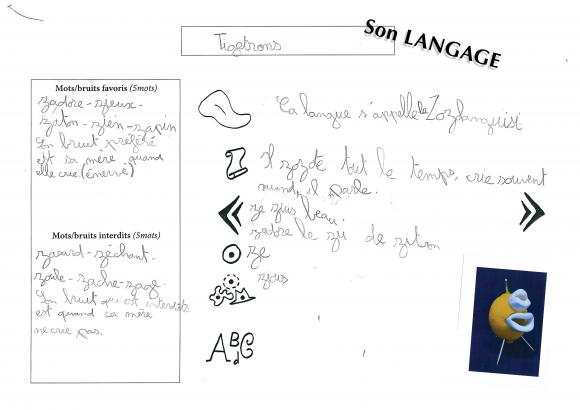 Son LANGAGE
Tigetrons
Mots/bruits favoris (5mots)
zadore - zjeux -
zaton - zien - zapin
Son bruit préféré
est sa mère quand
elle crie. (énervé)
Mots/bruits interdits (5mots)
zasard - zéchant.
zoile - zache - zage.
Son bruit qui est interdits
est quand sa mère
ne crie pas.
Ça langue s'appelle le Zozlanguist
Il zozote tout le temps, crie souvent
quand il parle.
ze zuis beau.
zadore le zu de zitron
ze
zous
ABdC